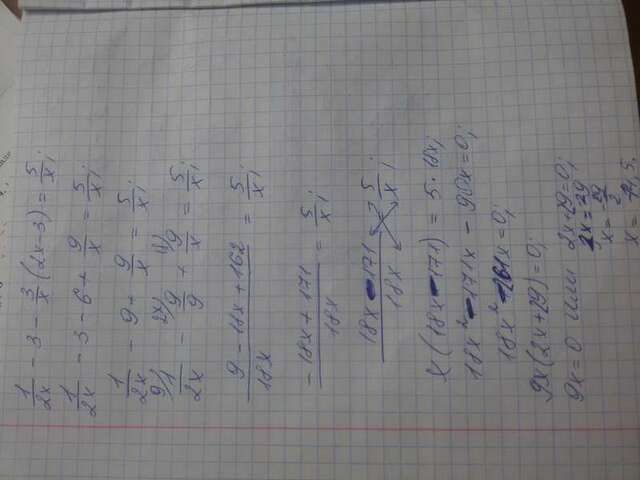 1/2x - 3 - 3/x (2x-3) = 5/x;
1/2x - 3 - 6 + 9/x = 5/x;
1/2x - 9 + 9/x = 5/x;
9/1/2x - 2x/9/9 + 9/x = 5/x;
9-18x+162/18x = 5/x;
-18x+171/18x = 5/x;
18x-171/18x = 5/x;
x(18x-171) = 5·18x;
18x² - 171x - 90x = 0;
18x² - 161x = 0;
9x(2x+29) = 0;
9x = 0 или 2x-29=0;
2x = 29
x = 29/2